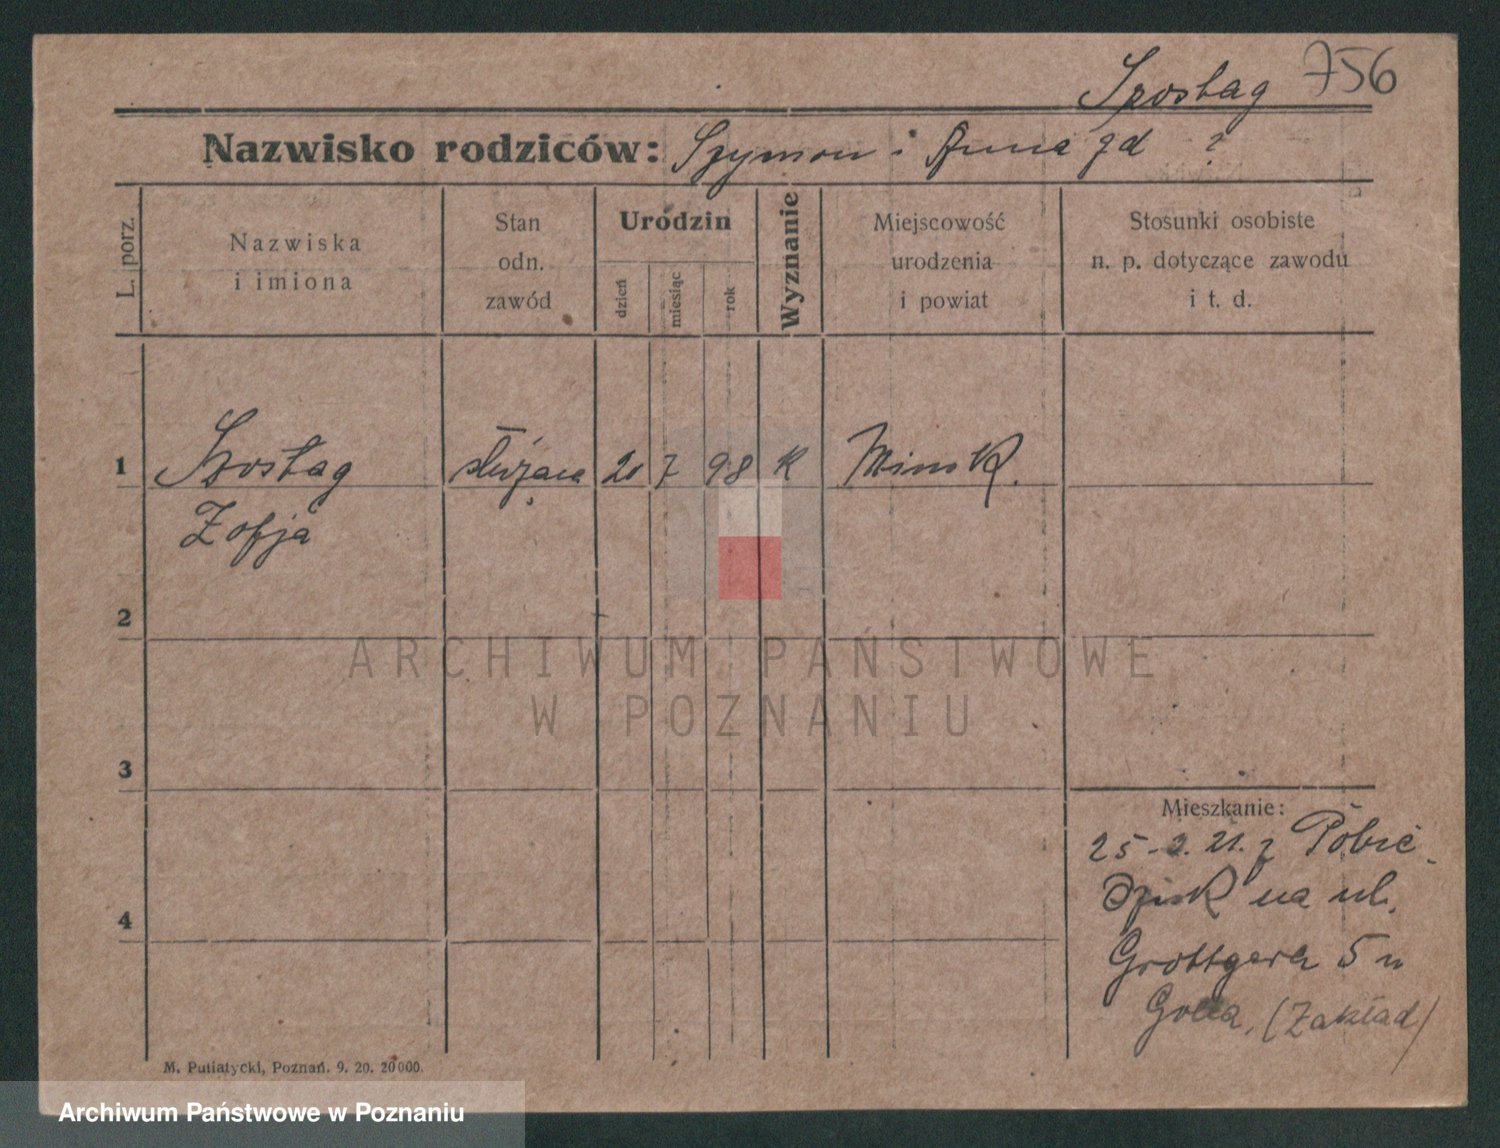 Szostag 756
Nazwisko rodziców: Szymon i Anna zd ?
L. porz.
Nazwiska
i imiona
Stan
odn.
zawód
Urodzin
dzień
miesiąc
rok
Wyznanie
Miejscowość
urodzenia
i powiat
Stosunki osobiste
n. p. dotyczące zawodu
i t. d.
1 Szostag służąca 20 7 98 K Minsk.
Zofja
2
ARCHIWUM PAŃSTWOWE
W POZNANIU
3
Mieszkanie:
25-2.21. z Pobie-
dzisk na ul.
4
Grottgera 5 u
(Zakład)
M. Putiatycki, Poznań. 9. 20. 20000.
Archiwum Państwowe w Poznaniu